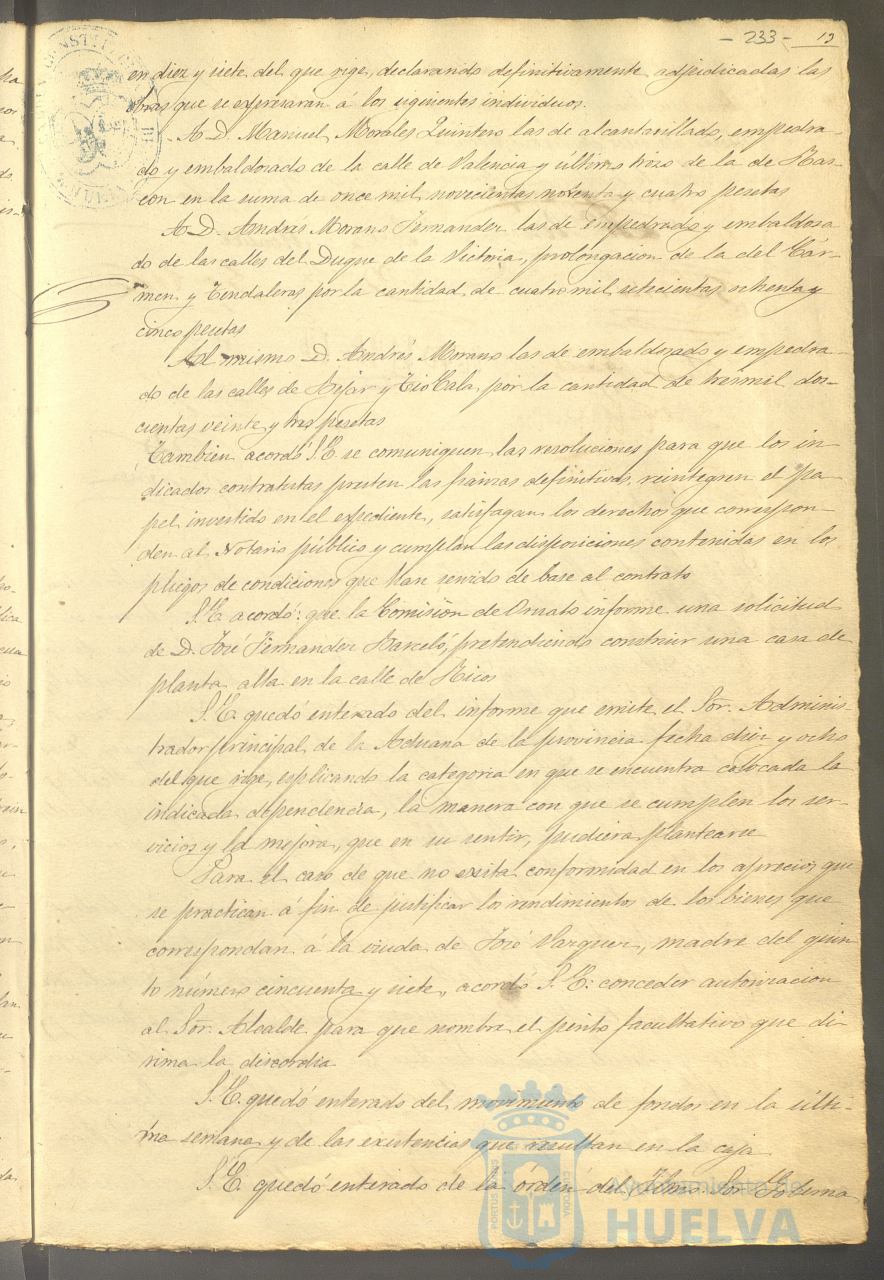 - 233 - 19
en diez y siete del que rige, declarando definitivamente adjudicadas las
obras que se expresaran á los siguientes individuos.
A D. Manuel Morales Quintero las de alcantarillado, empedra-
do y embaldosado de la calle de Valencia y último trozo de la de Ras-
con en la suma de once mil novecientas noventa y cuatro pesetas
A D. Andrés Morano Fernandez las de empedrado y embaldosa
do de las calles del Duque de la Victoria, prolongacion de la del Cár-
men y Tendaleras por la cantidad de cuatro mil setecientas ochenta y
cinco pesetas
Al mismo D. Andrés Morano las de embaldosado y empedra-
do de las calles de Béjar y Tio Calá, por la cantidad de tres mil dos-
cientas veinte y tres pesetas
Tambien acordó S.E. se comuniquen las resoluciones para que los in-
dicados contratistas presten las fianzas definitivas, reintegren el pa-
pel invertido en el expediente, satisfagan los derechos que correspon-
den al Notario público y cumplan las disposiciones contenidas en los
pliegos de condiciones que han servido de base al contrato
S.E. acordó: que la Comisión de Ornato informe una solicitud
de D. José Fernandez Barceló, pretendiendo construir una casa de
planta alta en la calle de Ricos
S.E. quedó enterado del informe que emite el Sor. Adminis
trador principal de la Aduana de la provincia fecha diez y ocho
del que rige, esplicando la categoria en que se encuentra colocada la
indicada dependencia, la manera con que se cumplen los ser-
vicios y la mejora, que en su sentir, pudiera plantearse
Para el caso de que no exista conformidad en los aprecios que
se practican á fin de justificar los rendimientos de los bienes que
correspondan á la viuda de José Vazquez, madre del quin
to número cincuenta y siete, acordó S.E: conceder autorizacion
al Sor. Alcalde para que nombre el perito facultativo que di
rima la discordia
S.E. quedó enterado del movimiento de fondos en la últi-
ma semana y de las existencias que resultan en la caja
S.E. quedó enterado de la órden del Iltmo. Sor. Goberna
Ayuntamiento de
HUELVA